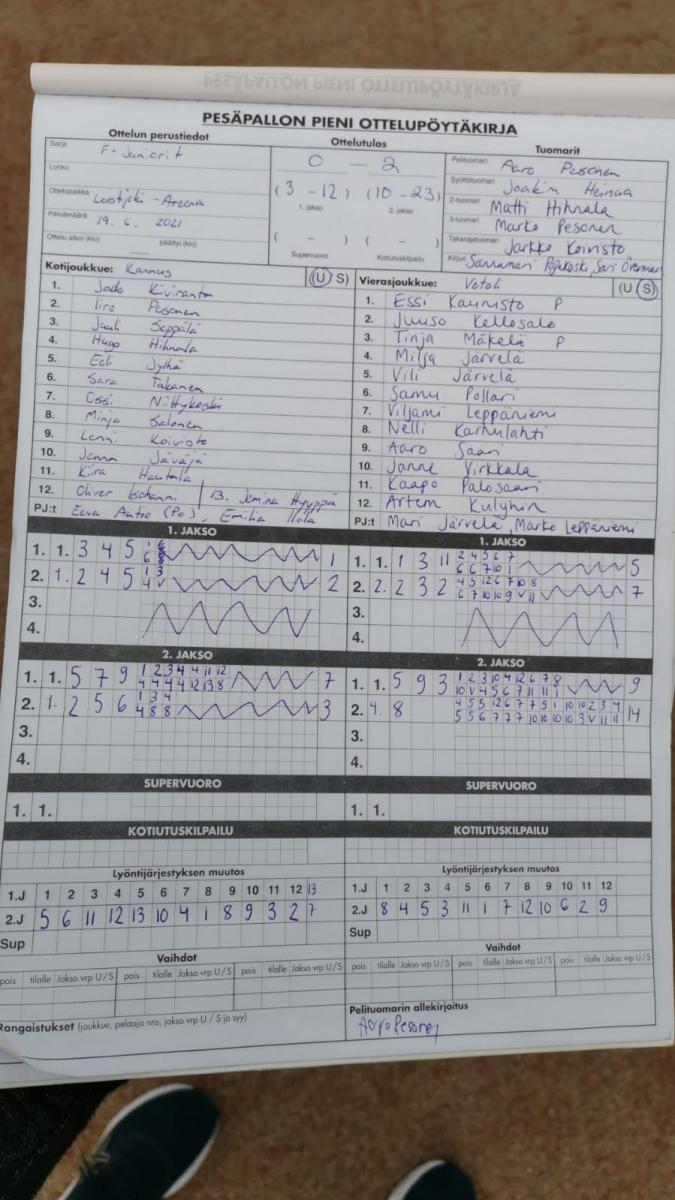 PESÄPALLON PIENI OTTELUPÖYTÄKIRJA
PESÄPALLON PIENI OTTELUPÖYTÄKIRJA
Ottelun perustiedot
Sarja F-Juniorit
Lohko
Ottelupaikka Lestijoki-Areena
Päivämäärä 19.6.2021
Ottelu alkoi (klo) päättyi (klo)
Ottelutulos
0 - 2
(3 - 12) (10 - 23)
1. jakso 2. jakso
( - ) ( - )
Supervuoro Kotiutuskilpailu
Tuomarit
Pelituomari Aaro Pesonen
Syöttötuomari Joakim Heinua
2-tuomari Matti Hihnala
3-tuomari Marko Pesonen
Takarajatuomari Jarkko Koivisto
Kirjuri Sannamari Sari
Kotijoukkue: Kannus (U S)
1. Kiviranta
2. Iiro Pesonen
3. Juuli Seppälä
4. Hugo Hihnala
5. Eeli Jylhä
6. Sara Takanen
7. Ossi Niittykoski
8. Minja Salonen
9. Lenni Koivisto
10. Jenna Jäväjä
11. Kiira Hautala
12. Oliver 13. Jemina Hyyppä
PJ:t Eeva Autio (Po), Emilia Ilola
Vierasjoukkue: Veteli (U S)
1. Essi Kaunisto P
2. Juuso Kellosalo
3. Tinja Mäkelä P
4. Milja Järvelä
5. Vili Järvelä
6. Samu Pollari
7. Viljami Leppäniemi
8. Nelli Karhulahti
9. Aaro Saari
10. Janne Virkkala
11. Kaapo Palosaari
12. Artem Kulyhin
PJ:t Mari Järvelä, Marko Leppäniemi
1. JAKSO
1. 1. 3 4 5 1
2. 1. 2 4 5 1 3 4 V 2
3.
4.
1. JAKSO
1. 1. 1 3 11 2 4 5 6 7 5
6 6 7 10 1
2. 2. 2 3 2 4 5 12 6 7 10 8 7
6 7 10 10 9 V 11
3.
4.
2. JAKSO
1. 1. 5 7 9 1 2 3 4 4 11 12 7
4 4 4 4 12 13 8
2. 1. 2 5 6 1 3 4 3
4 8 8
3.
4.
2. JAKSO
1. 1. 5 9 3 1 2 3 10 4 12 6 7 8 9
10 V 4 5 6 7 11 11 1
2. 4. 8 4 5 5 12 6 7 7 9 1 10 10 2 3 4 14
5 5 6 7 7 7 10 10 10 10 3 V 11 11
3.
4.
SUPERVUORO
1. 1.
SUPERVUORO
1. 1.
KOTIUTUSKILPAILU
KOTIUTUSKILPAILU
Lyöntijärjestyksen muutos
1.J 1 2 3 4 5 6 7 8 9 10 11 12 13
2.J 5 6 11 12 13 10 4 1 8 9 3 2 7
Sup
Lyöntijärjestyksen muutos
1.J 1 2 3 4 5 6 7 8 9 10 11 12
2.J 8 4 5 3 11 1 7 12 10 6 2 9
Sup
Vaihdot
pois tilalle Jakso vrp U / S pois tilalle Jakso vrp U / S pois tilalle Jakso vrp U / S
Vaihdot
pois tilalle Jakso vrp U / S pois tilalle Jakso vrp U / S pois tilalle Jakso vrp U / S
Rangaistukset (joukkue, pelaaja nro, jakso vrp U / S ja syy)
Pelituomarin allekirjoitus
Aaro Pesonen